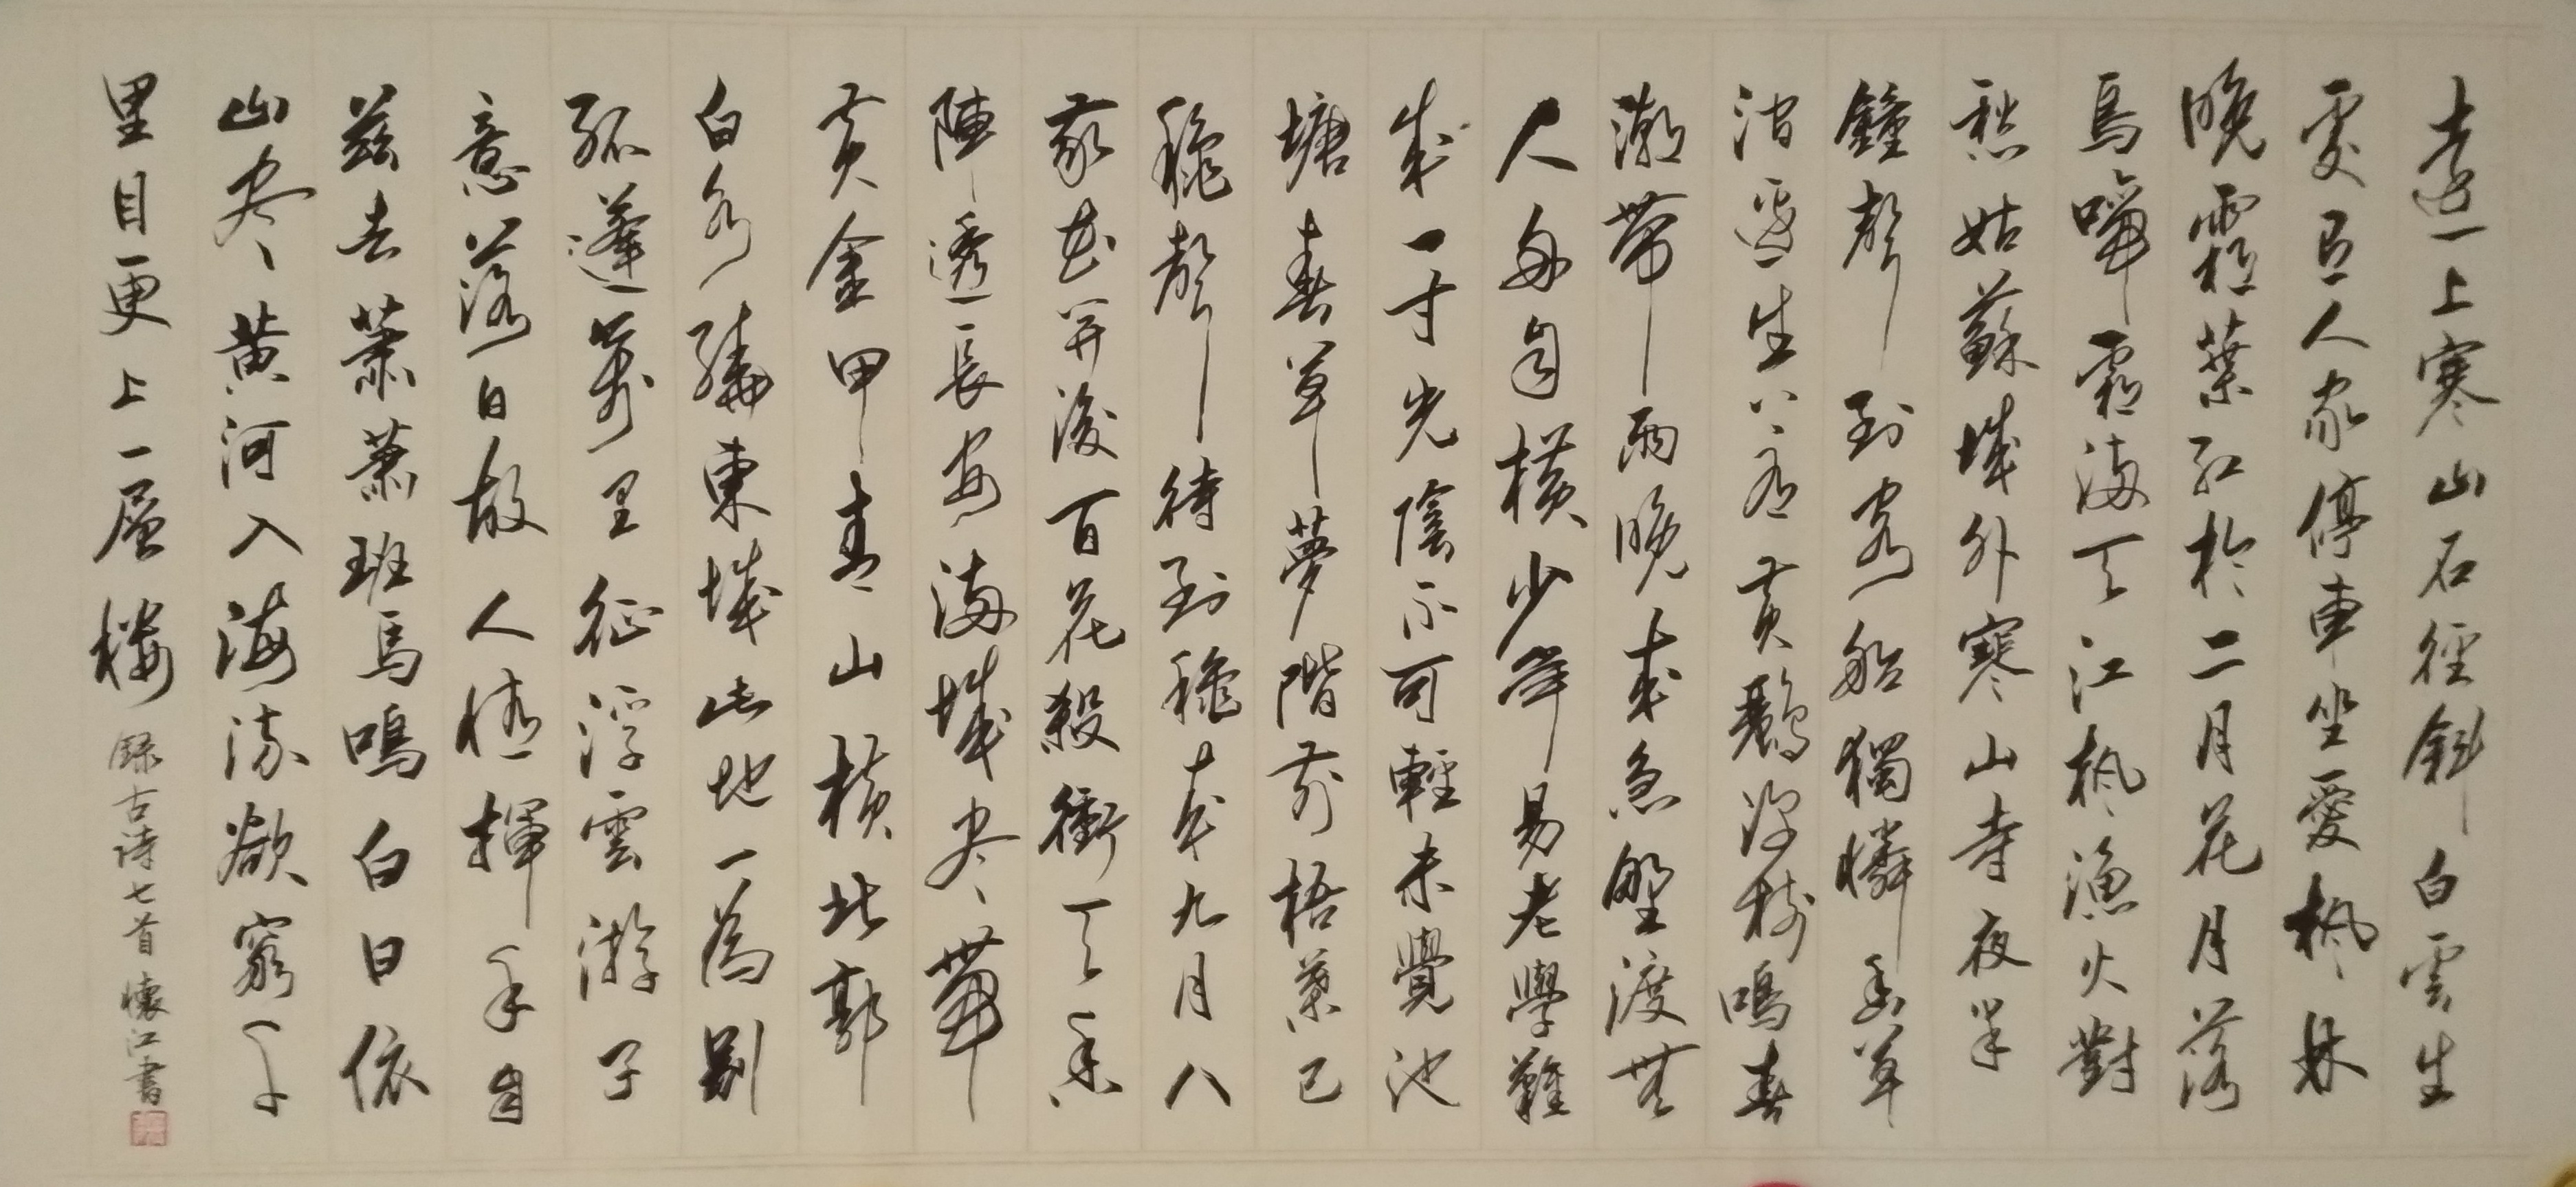 遠上寒山石徑斜白雲生
處有人家停車坐愛楓林
晚霜葉紅於二月花月落
烏啼霜滿天江楓漁火對
愁姑蘇城外寒山寺夜半
鐘聲到客船獨憐幽草
澗邊生上有黃鸝深樹鳴春
潮帶雨晚來急野渡無
人舟自橫少年易老學難
成一寸光陰不可輕未覺池
塘春草夢階前梧葉已
穐聲待到穐來九月八
我花開後百花殺衝天香
陣透長安滿城尽帶
黃金甲青山橫北郭
白水繞東城此地一為别
孤蓬萬里征浮雲游子
意落日故人情揮手自
茲去蕭蕭班馬鳴白日依
山尽黃河入海流欲窮千
里目更上一層樓 錄古詩七首 懷江書